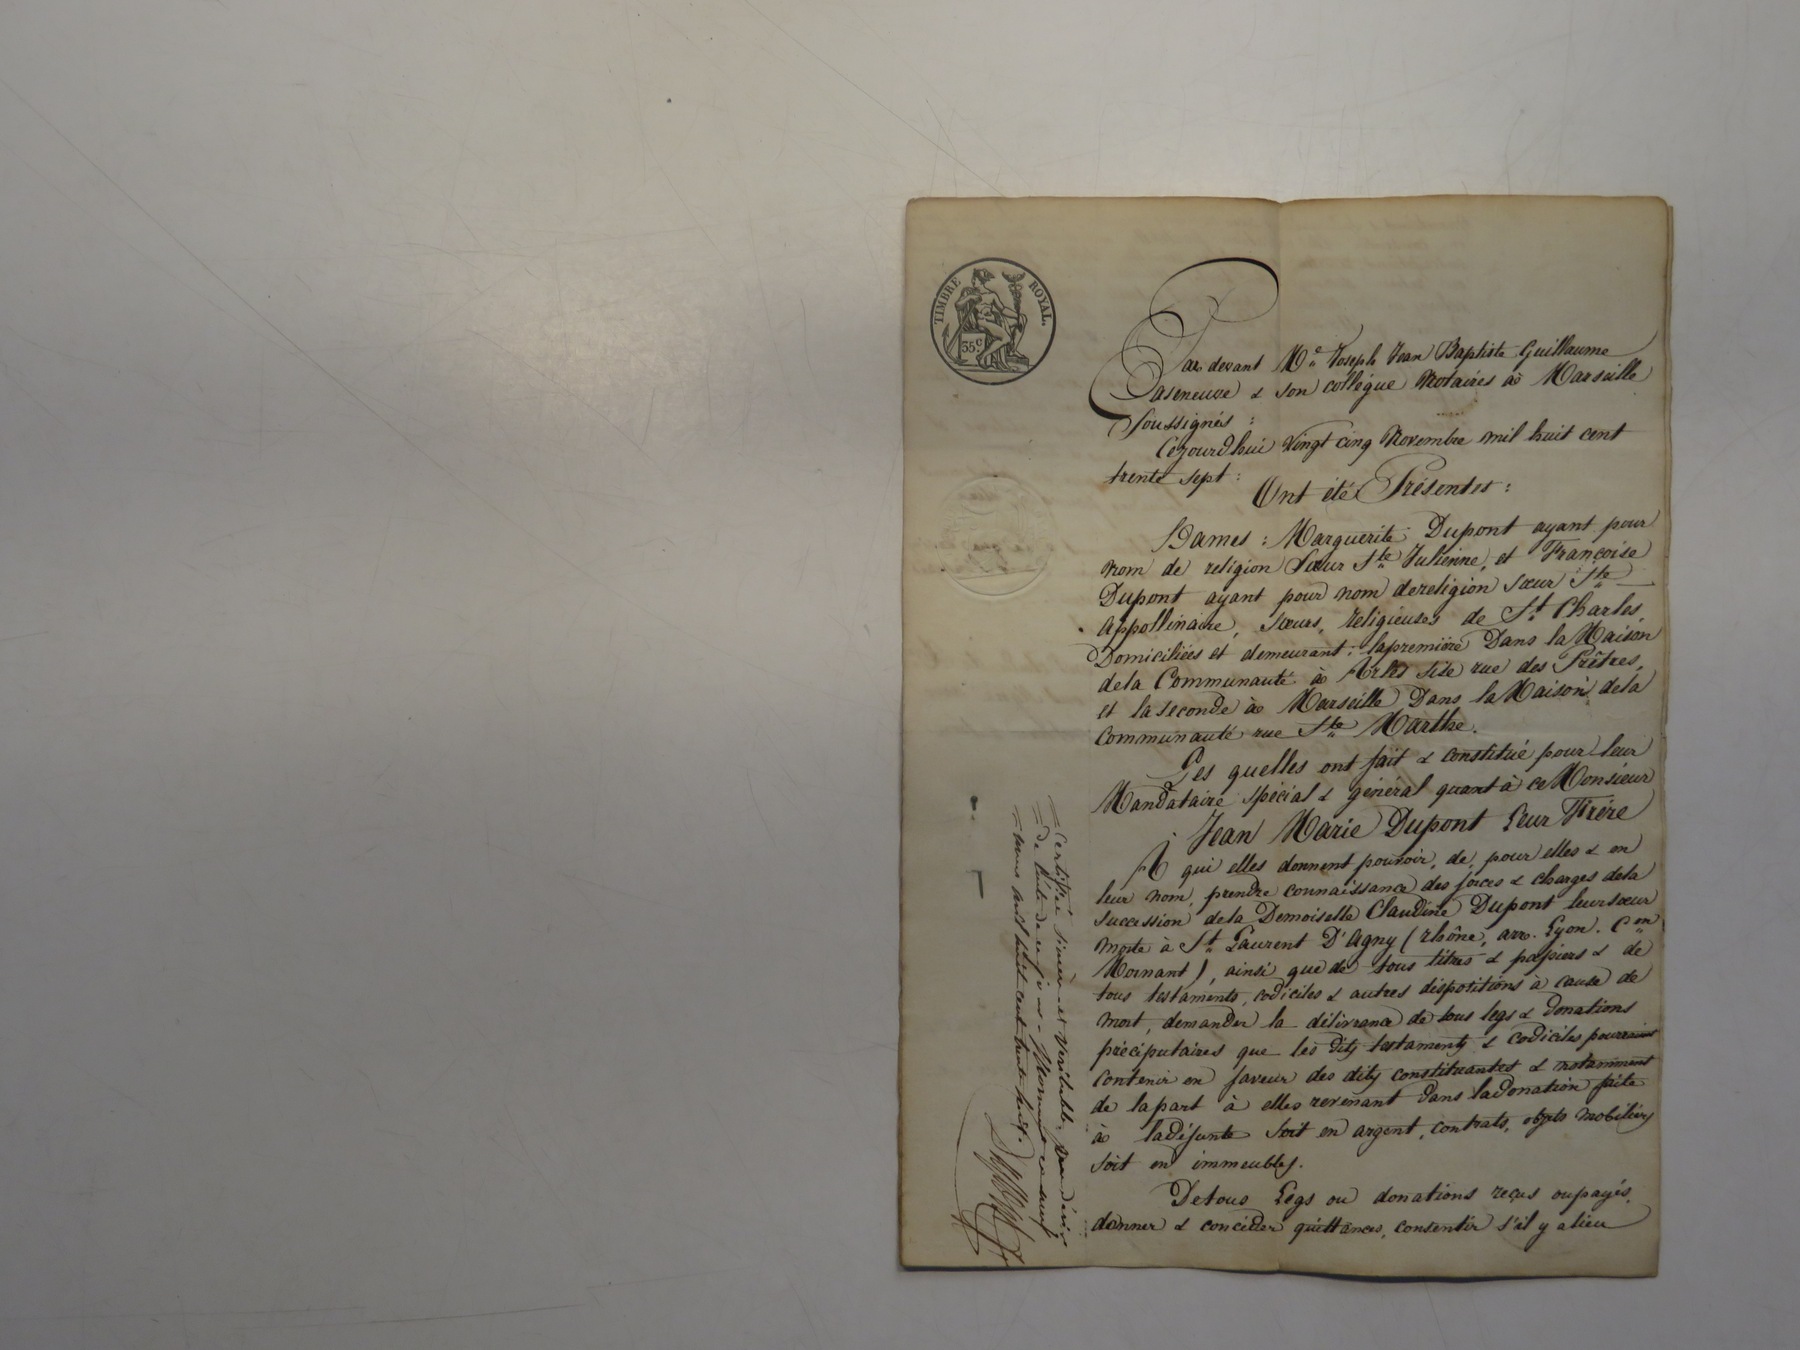 TIMBRE ROYAL.
35c
Par devant Me Joseph Jean Baptiste Guillaume
Laseneuve & son collégue Notaires à Marseille
Soussignés :
Cejourd'hui vingt cinq Novembre mil huit cent
trente sept :
Ont été Présentes :
Dames : Marguerite Dupont ayant pour
nom de religion Sœur Ste Julienne, et Françoise
Dupont ayant pour nom de religion sœur Ste
Appollinaire, sœurs, religieuses de St Charles,
Domiciliées et demeurant : la premiére Dans la Maison
de la Communauté à Arles sise rue des Prêtres,
et la seconde à Marseille Dans la Maison de la
Communauté rue Ste Marthe.
Les quelles ont fait & constitué pour leur
Mandataire spécial & général quant à ce Monsieur
Jean Marie Dupont Leur Frére
A qui elles donnent pouvoir, de, pour elles & en
leur nom, prendre connaissance des forces & charges de la
succession de la Demoiselle Claudine Dupont leur sœur
morte à St Laurent D'Agny (rhône, arr. Lyon. Con
Mornant), ainsi que de tous titres & papiers & de
tous testaments, codiciles & autres dispositions à cause de
mort, demander la délivrance de tous legs & donations
préciputaires que les dits testaments & codiciles pourraient
contenir en faveur des dites constituantes & notamment
de la part à elles revenant dans la donation faite
à la défunte soit en argent, contrats, objets mobiliers
soit en immeubles.
De tous Legs ou donations reçus ou payés,
donner & concéder quittances, consentir s'il y a lieu
Certifié sincère et Véritable,
mil huit cent trente huit.